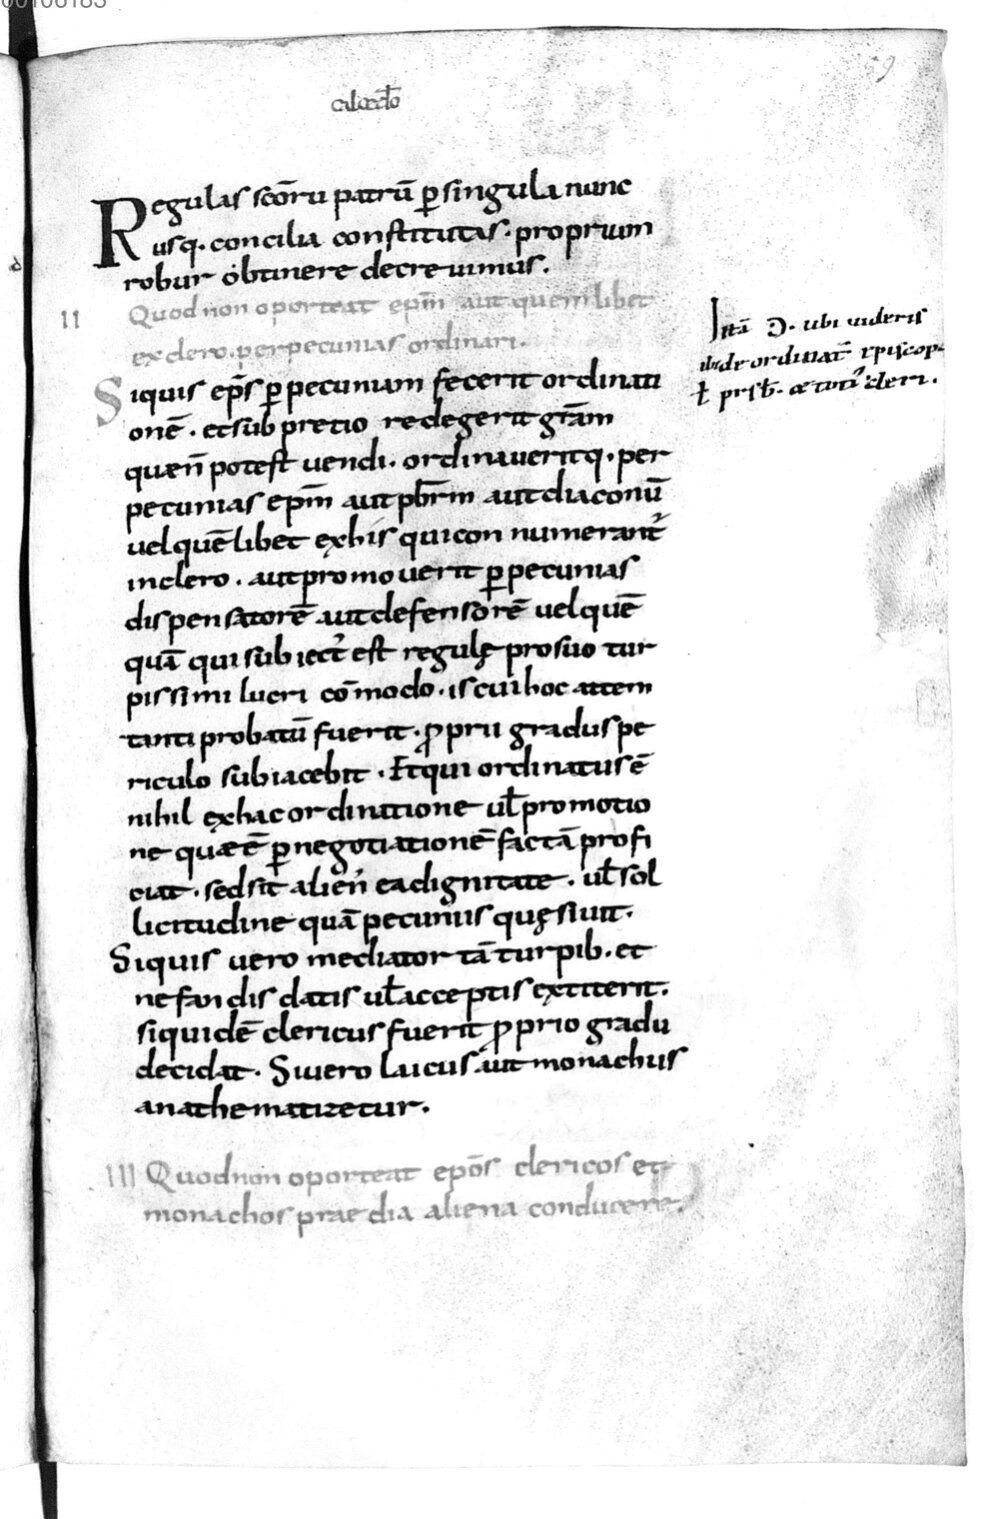 00106183
59
calcedō
Regulas scōru patrū ꝑ singula nunc
usq. concilia constitutas. proprium
robur obtinere decrevimus.
II Quod non oporteat epm̄ aut quemlibet
ex clero. per pecunias ordinari.
Siquis ep̄s ꝑ pecuniam fecerit ordinati
onē. et sub pretio redegerit grām
quæ n̄ potest vendi. ordinaveritq. per
pecunias epm̄ aut pbr̄m aut diaconū
vel quēlibet ex his qui connumerant᷑
in clero. aut promoverit ꝑ pecunias
dispensatorē aut defensorē vel quē
quā qui subiect᷒ est regulę pro suo tur
pissimi lucri cōmodo. is cui hoc attem
tanti probatū fuerit. ꝓprii gradus pe
riculo subiacebit. Et qui ordinatus ē
nihil ex hac ordinatione ul̄ promotio
ne quæ ē ꝑ negotiationē factā profi
ciat. sed sit alien᷒ ea dignitate. ul̄ sol
licitudine quā pecuniis quęsiuit.
Siquis vero mediator tā turpib. et
nefandis datis ul̄ acceptis extiterit.
siquidē clericus fuerit ꝓprio gradu
decidat. Si vero laicus aut monachus
anathematizetur.
III Quod non oporteat epōs clericos et
monachos praedia aliena conducere.
ubi videris
de ordinat̄ episcop.
ł prsb̄. æ cleri.